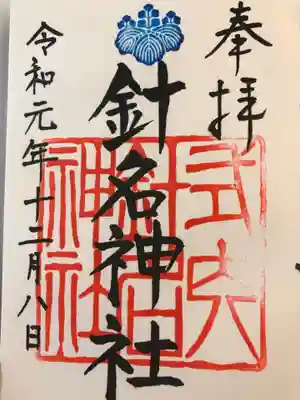 奉拝
針名神社
令和元年十二月八日
式内
神社